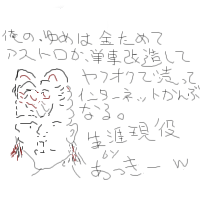 俺の、ゆめは金ためて
アストロか、単車改造して
ヤフオクで売って
インターネットかんぶ
なる。
生涯現役
by
あっきーw